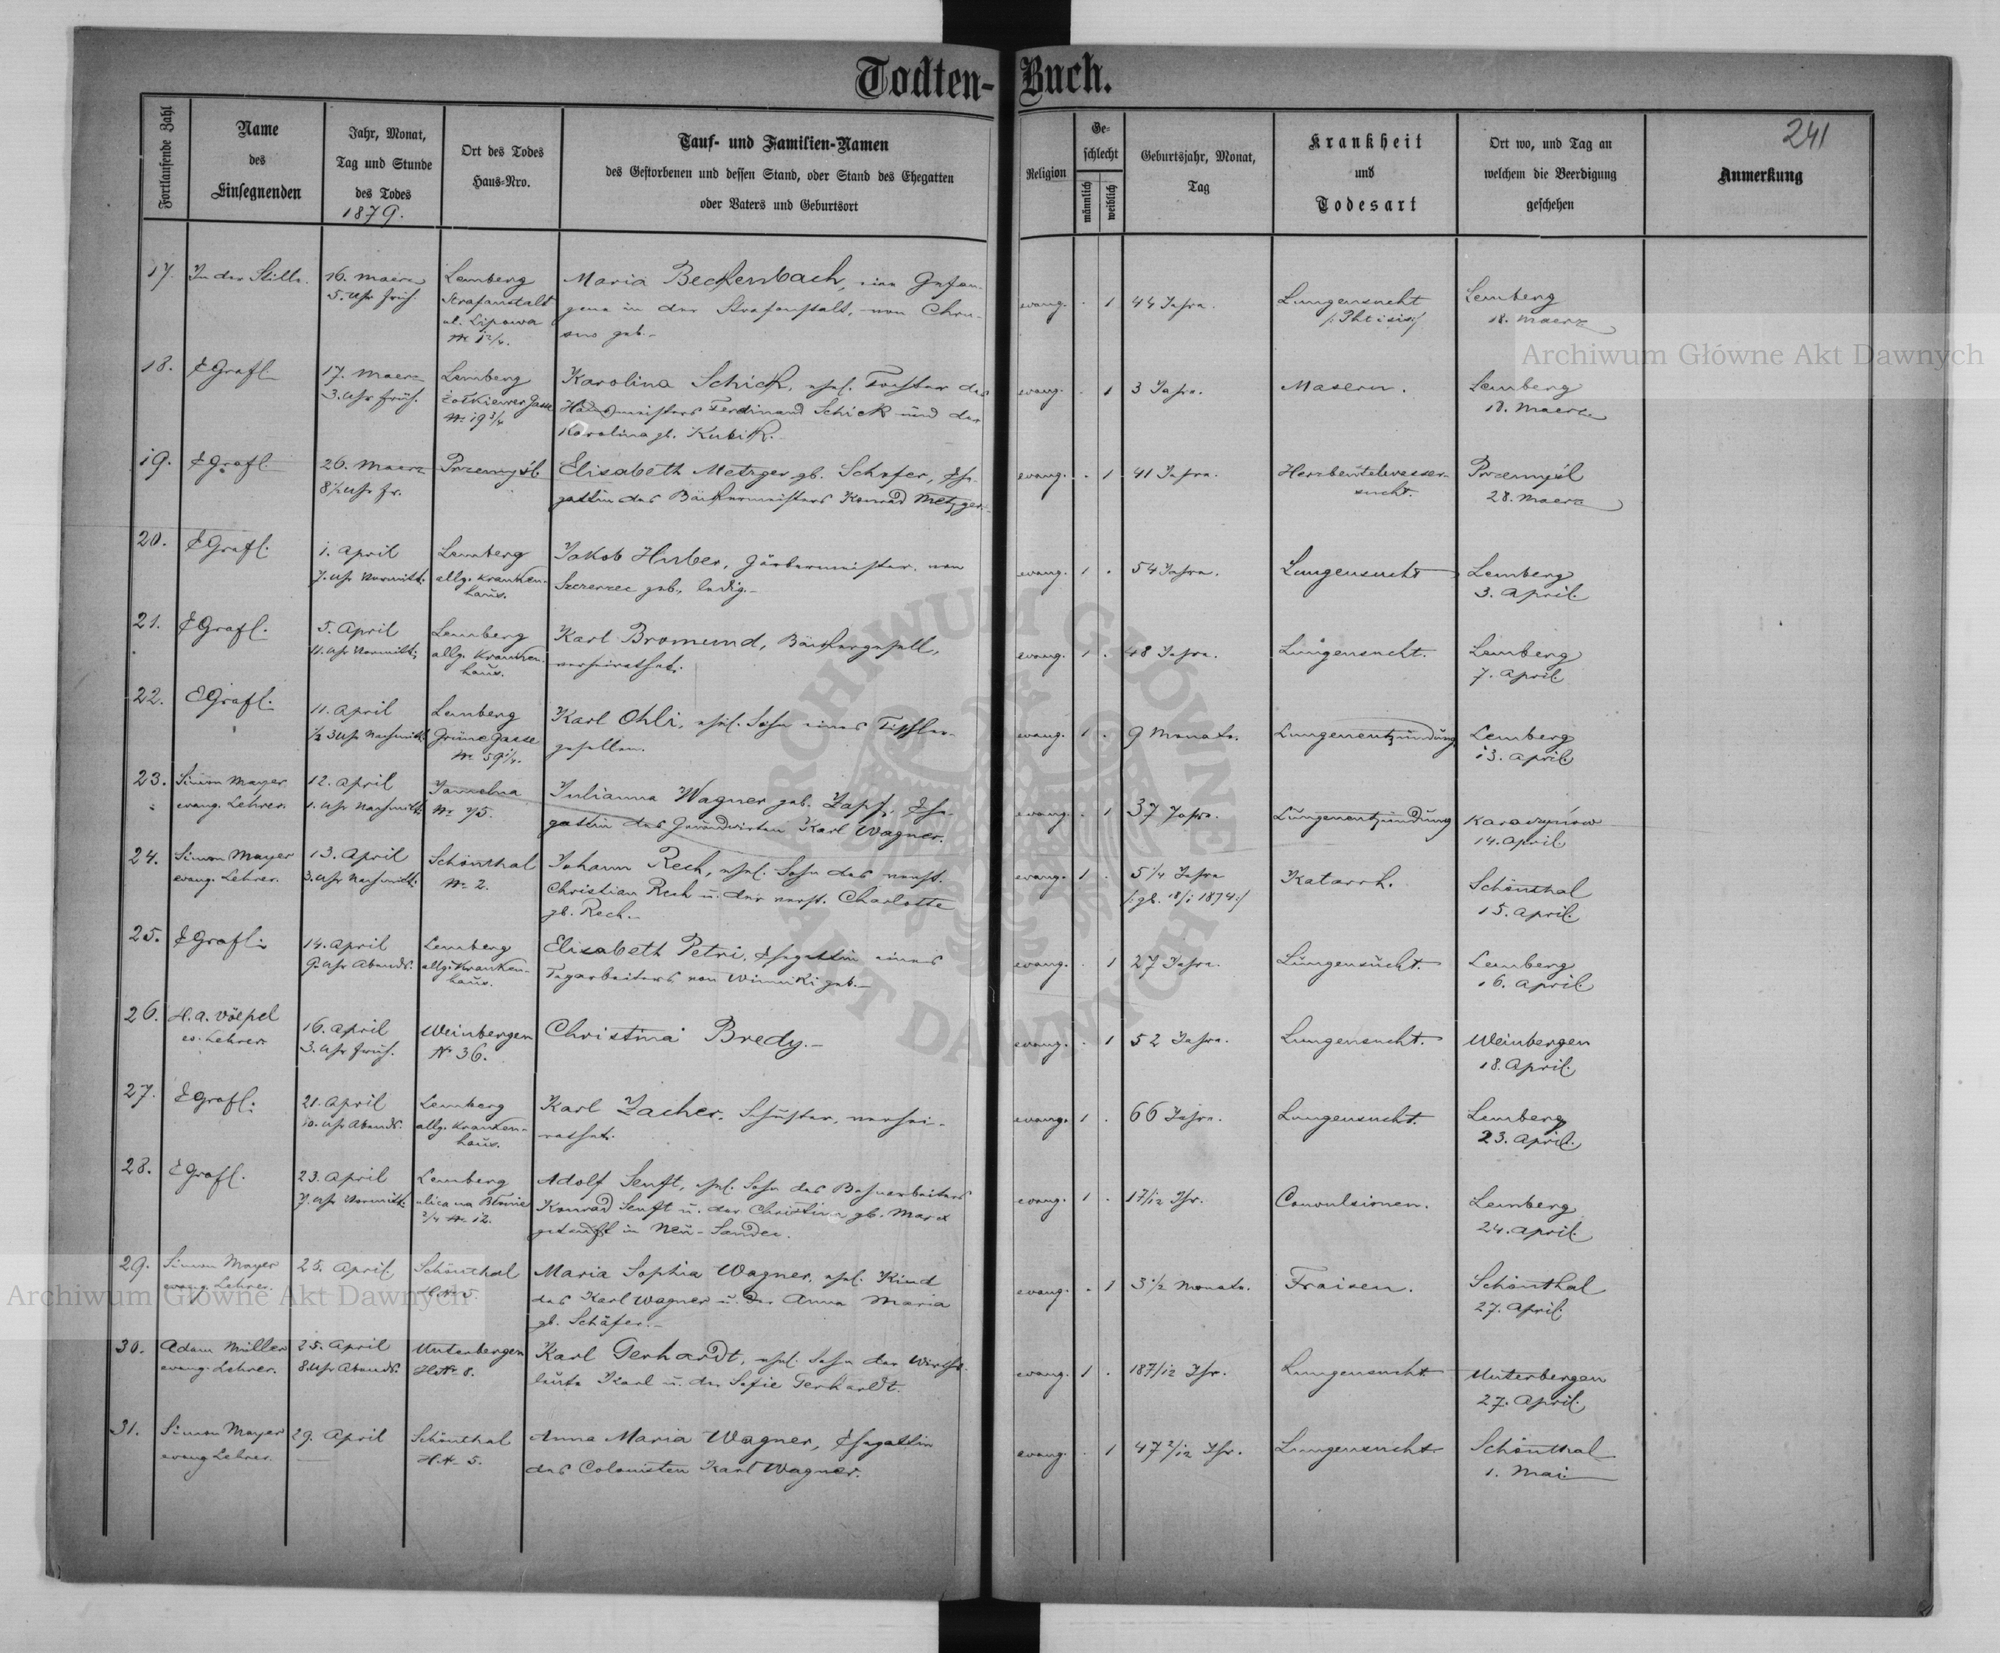 Todten-Buch.
241
Fortlaufende Zahl
Name
des
Einsegnenden
Jahr, Monat,
Tag und Stunde
des Todes
1879.
Ort des Todes
Haus-Nro.
Tauf- und Familien-Namen
des Gestorbenen und dessen Stand, oder Stand des Ehegatten
oder Vaters und Geburtsort
Religion
Ge-
schlecht
männlich
weiblich
Geburtsjahr, Monat,
Tag
Krankheit
und
Todesart
Ort wo, und Tag an
welchem die Beerdigung
geschehen
Anmerkung
17. In der Stille.
16. Maerz
5. Uhr früh.
Lemberg
Strafanstalt
ul. Lipowa
Maria Beckenbach, eine Gefan-
gene in der Strafanstalt, von Chru-
sno geb.
evang. . 1
44 Jahre.
Lungensucht
/: Phtisis :/
Lemberg
18. Maerz
18. EGrafl
17. Maerz
3. Uhr früh.
Lemberg
Zolkiewer Gasse
Nr 19 3/4
Karolina Schick, ehel. Tochter des
Hausmeisters Ferdinand Schick und der
Karolina gb. Kubik.
evang. . 1
3 Jahre.
Masern.
Lemberg
18. Maerz
19. EGrafl.
26. Maerz
8½ Uhr fr.
Przemyśl
Elisabeth Metzger gb. Schafer, Ehe-
gattin des Bäckermeisters Konrad Metzger.
evang. . 1
41 Jahre.
Herzbeutelwasser-
sucht.
Przemyśl
28. Maerz
20. EGrafl.
1. April
7. Uhr Vormitt.
Lemberg
allg. Kranken-
haus.
Jakob Huber, Gärbermeister, von
Szczerzec geb., ledig.
evang. 1 .
54 Jahre.
Lungensucht
Lemberg
3. April
21. EGrafl.
5. April
11. Uhr Vormitt.
Lemberg
allg. Kranken-
haus.
Karl Bromund, Bäckergesell,
verheirathet.
evang. 1 .
48 Jahre.
Lungensucht.
Lemberg
7. April
22. EGrafl.
11. April
½ 3 Uhr Nachmitt.
Lemberg
Grüne Gasse
Nr 59 1/4.
Karl Ohli, ehel. Sohn eines Tischler-
gesellen.
evang. 1 .
9 Monate.
Lungenentzündung
Lemberg
13. April
23. Simon Mayer
evang. Lehrer.
12. April
1. Uhr Nachmitt.
Jamelna
Nr 75.
Julianna Wagner geb. Zapf, Ehe-
gattin des Grundwirten Karl Wagner.
evang. . 1
37 Jahre.
Lungenentzündung
Karaczynow
14. April
24. Simon Mayer
evang. Lehrer.
13. April
3. Uhr Nachmitt.
Schönthal
Nr 2.
Johann Rech, ehel. Sohn des verst.
Christian Rech u. der verst. Charlotte
gb. Rech.
evang. 1 .
5 1/4 Jahre
/: gb. 18/1 1874 :/
Katarrh.
Schönthal
15. April
25. EGrafl.
14. April
9. Uhr Abends.
Lemberg
allg. Kranken-
haus.
Elisabeth Petri, Ehegattin eines
Tagarbeiters von Winniki geb.
evang. . 1
27 Jahre.
Lungensucht.
Lemberg
16. April
26. H. A. Völpel
ev. Lehrer
16. April
3. Uhr früh.
Weinbergen
Nr 36.
Christina Bredy.
evang. . 1
52 Jahre.
Lungensucht.
Weinbergen
18. April
27. EGrafl.
21. April
10. Uhr Abends.
Lemberg
allg. Kranken-
haus.
Karl Zacher, Schuster, verhei-
rathet.
evang. 1 .
66 Jahre.
Lungensucht.
Lemberg
23. April
28. EGrafl.
23. April
7. Uhr Vormitt.
Lemberg
ulica na Błonie
2/4 Nr 12.
Adolf Senft, ehel. Sohn des Bahnarbeiters
Konrad Senft u. der Christina gb. Marx
getauft in Neu-Sandec.
evang. 1 .
1 7/12 Jhr.
Convulsionen.
Lemberg
24. April
29. Simon Mayer
evang. Lehrer.
25. April
Schönthal
H.N. 5.
Maria Sophia Wagner, ehel. Kind
des Karl Wagner u. der Anna Maria
gb. Schäfer.
evang. . 1
3 ½ Monate.
Fraisen.
Schönthal
27. April
30. Adam Müller
evang. Lehrer.
25. April
8. Uhr Abends.
Unterbergen
H.N. 8.
Karl Gerhardt, ehel. Sohn der Wirths-
leute Karl u. der Sofie Gerhardt.
evang. 1 .
18 7/12 Jhr.
Lungensucht
Unterbergen
27. April
31. Simon Mayer
evang Lehrer.
29. April
Schönthal
H.N. 5.
Anna Maria Wagner, Ehegattin
des Colonisten Karl Wagner.
evang. . 1
47 2/12 Jhr.
Lungensucht
Schönthal
1. Mai
Archiwum Główne Akt Dawnych
Archiwum Główne Akt Dawnych
ARCHIWUM GŁÓWNE
AKT DAWNYCH